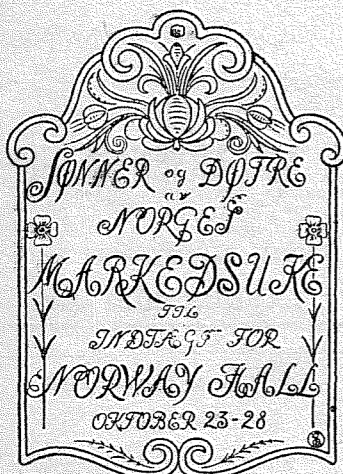 SØNNER og DØTRE
av
NORGES
MARKEDSUKE
TIL
INDTÆGT FOR
NORWAY HALL
OKTOBER 23-28